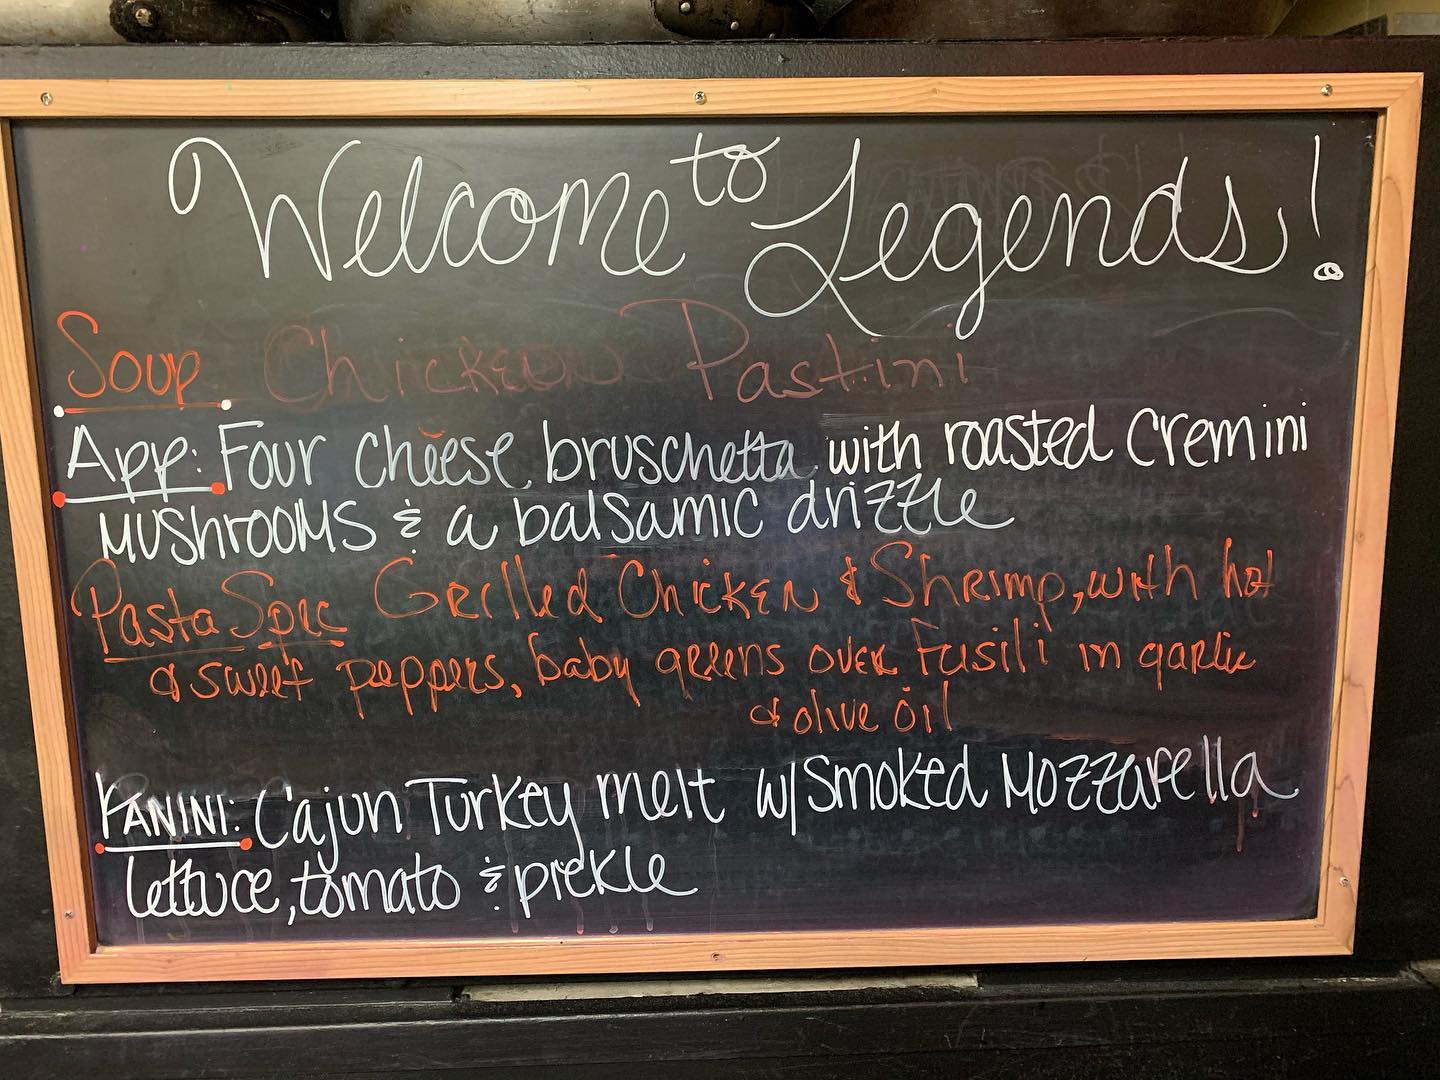 Welcome to Legends!
Soup Chicken Pastini
App: Four cheese bruschetta with roasted cremini
mushrooms & a balsamic drizzle
Pasta Spec Grilled Chicken & Shrimp, with hot
& sweet peppers, baby greens over Fusilli in garlic
& olive oil
PANINI: Cajun Turkey melt w/smoked Mozzarella
lettuce, tomato & pickle